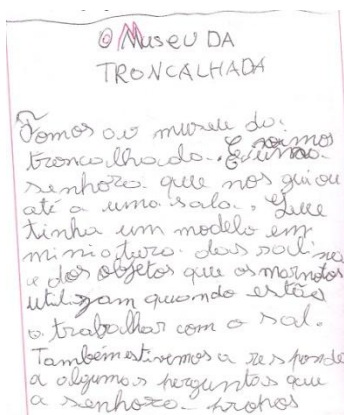 O Museu DA
TRONCALHADA
Fomos ao museu da
troncalhada. E vimos
senhora que nos guiou
até a uma sala. Que
tinha um modelo em
miniatura das salinas
e dos objetos que os marnotos
utilizam quando estão
a trabalhar com o sal.
Também estivemos a responde
a algumas perguntas que
a senhora propos